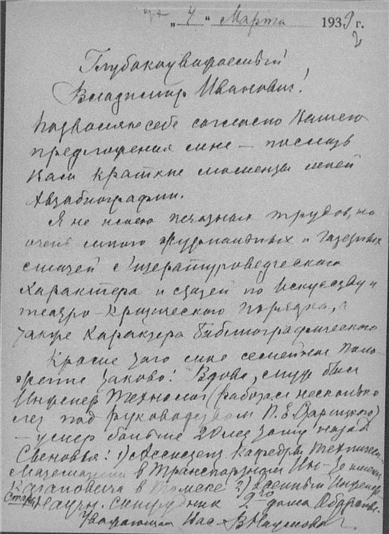 „4" Марта 1939 г.
Глубокоуважаемый
Владимир Иванович!
Позволяю себе согласно Вашего
предложения мне — послать
Вам краткие моменты моей
Автобиографии.
Я не имею печатных трудов, но
очень много журнальных и газетных
статей Литературоведческого
характера и статей по Искусству и
театро-критического порядка, а
также характера библиографического
Кроме того мне семейное поло
жение таково: Вдова, муж был
Инженер Технолог (работал несколько
лет под руководством
— умер больше 20 лет тому назад
Сыновья: 1) Ассистент Кафедры
Математики в Транспортном Ин-те имени
Кагановича в Томске 2) Военный Инженер
Старш. Научн. Сотрудник 2го дома Обороны.
Уважающая Вас